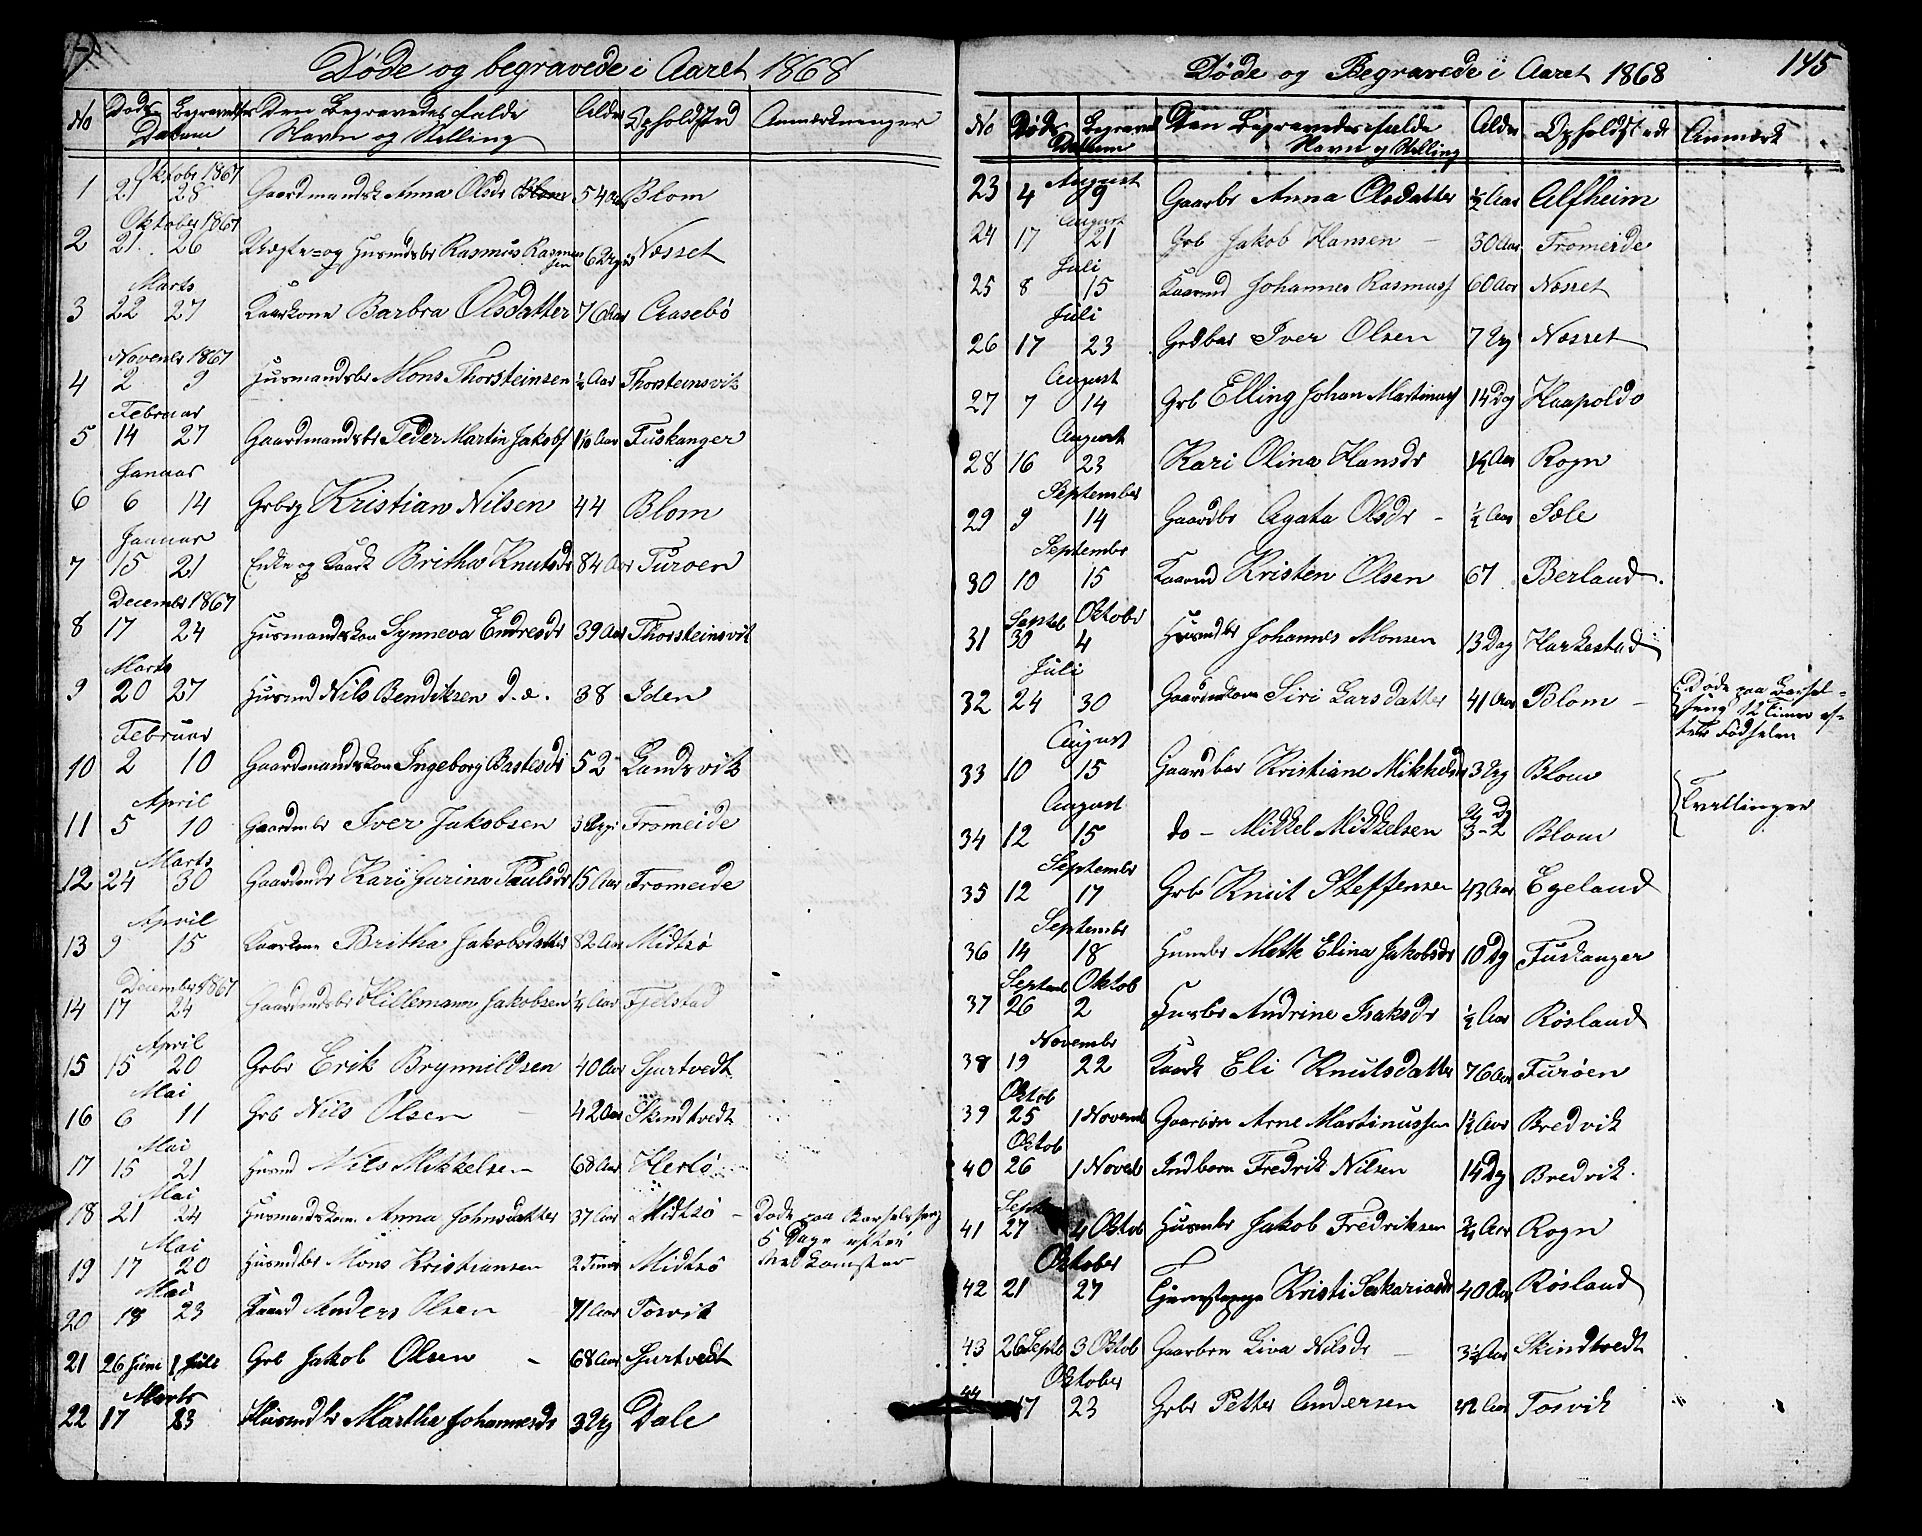 Døde og begravede i Aaret 1868
No Døds Begravelses Den Begravedes fulde Alder Opholdsted Anmærkninger
Datum Navn og Stilling
Oktobr 1867
1 21 28 Gaardmandsk Anna Olsdr 54 Aar Blom
Oktober 1867
2 21 26 Rasmus Næsset
Marts
3 22 27 Kaarkone Barbra Olsdatter 76 Aar Aasebø
Novembr 1867
4 2 9 Husmandsbr Mons Thorsteinsen ¼ Aar Thorsteinsvik
Februar
5 14 27 Gaardmandsbr Peder Martin Jakobs Aar Tuskanger
Januar
6 6 14 Kristian Nilsen 44 Blom
Januar
7 15 21 Enke og Kaark Britha Knutsdr 84 Aar Turøen
Decembr 1867
8 17 24 Husmandskon Synneva Endresdr 39 Aar Thorsteinsvik
Marts
9 20 27 Husmd Nils Bendiksen d.æ. 38 Iden
Februar
10 2 10 Gaardmandskon Ingeborg Bastesdr 52 Landsvik
April
11 5 10 Gaardmbr Iver Jakobsen Fromeide
Marts
12 24 30 Kari Gurina Paulsdr 15 Aar Fromeide
April
13 9 15 Kaarkone Britha Jakobsdatter 82 Aar Midtsø
December 1867
14 17 24 Gaardmdsbr Hillemann Jakobsen ¼ Aar Fjelstad
April
15 15 20 Grbr Erik Brynnildsen 40 Aar Hjertvedt
Mai
16 6 11 Grb Nils Olsen 42 Aar Skindtvedt
Mai
17 15 21 Husmd Nils Mikkelsen 68 Aar Herlø
Mai
18 21 24 Husmandskone Anna Johnsdatter 37 Aar Midtsø Døde paa Barselseng
5 Dage efter
Mai
19 17 20 Husmdbr Mons Kristiansen 2 Timer Midtsø Nedkomsten
Mai
20 18 23 Kaard Anders Olsen 71 Aar Tosvik
21 26 Juni 1 Juli Grb Jakob Olsen 68 Aar Hjertvedt
Marts
22 17 23 Husmdbr Martha Johannesdr 3 Dale
Døde og Begravede i Aaret 1868 145
No Døds Begravel Den Begravedes fulde Alder Opholdsted Anmærk
Datum Navn og Stilling
August
23 4 9 Gaarbr Anna Olsdatter ½ Aar Alfheim
August
24 17 21 Grb Jakob Hansen 30 Aar Fromeide
Juli
25 8 15 Kaarmd Johannes Rasmuss 60 Aar Næsset
Juli
26 17 23 Iver Olsen 7 Næsset
August
27 7 14 Grb Elling Johan Martinus 14 Dg Haapoldo
August
28 16 23 Kari Olina Hansdr Aar Rogn
September
29 9 14 Gaardbr Agata Olsdr ½ Aar Sæle
Septembr
30 10 15 Kaarmd Kristen Olsen 67 Berland
Septeb Oktobr
31 30 4 Husmdbr Johannes Monsen 13 Dag Harkestad
Juli
32 24 30 Siri Larsdatter 41 Aar Blom Døde paa Barsel-
seng 12 Timer ef-
ter Fødselen
August
33 10 15 Gaardbar Kristiane Mikkelsdr 3 Blom
August
Tvillinger
34 12 15 do - Mikkel Mikkelsen 3-2 Blom
Septembr
35 12 17 Grbr Knut Steffensen 43 Aar Egeland
Septembr
36 14 18 Mette Elina Jakobsdr 10 Dg Tuskanger
Septemb Oktob
37 26 2 Husbr Andrine Isaksdr ½ Aar Røsland
Novembr
38 19 22 Kaark Eli Knutsdatter 76 Aar Turøen
Oktob
39 25 1 Novemb Arne Martinussen Aar Bredvik
Oktob
40 26 1 Noveb Indbarn Fredrik Nilsen 14 Dg Bredvik
Sept
41 27 4 Oktob Husmbr Jakob Fredriksen ¾ Aar Rogn
Oktober
42 21 27 Tjenestepige Kristi Sakariasdr 40 Aar Røsland
43 26 Septb 3 Oktob Gaarbrn Liva Nilsdr 3½ Aar Skindtvedt
Oktober
44 17 23 Grbr Petter Andersen 42 Aar Tosvik